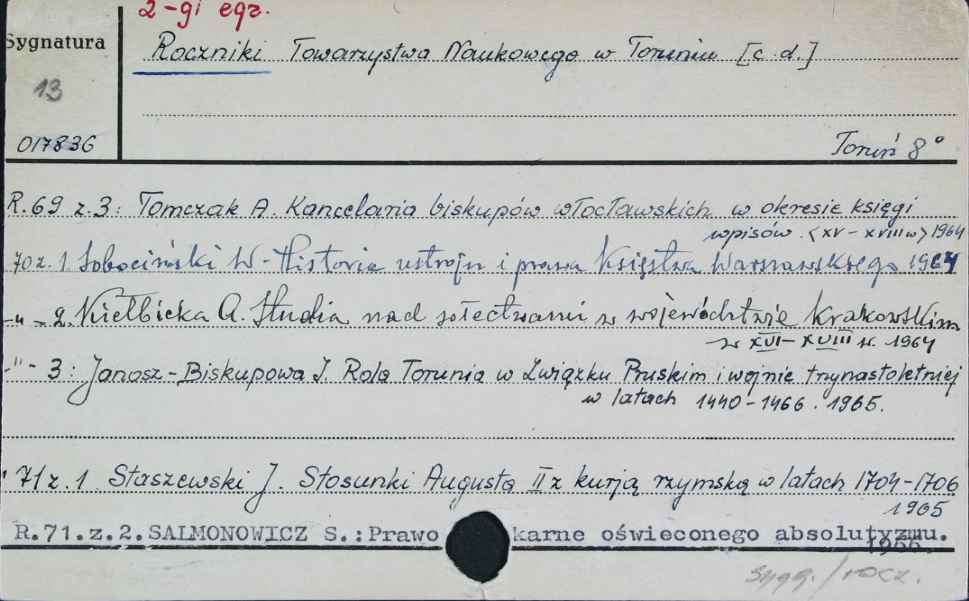 2-gi egz.
Sygnatura
Roczniki Towarzystwa Naukowego w Toruniu [c d.]
13
017836
Toruń 8°
R.69 z.3: Tomczak A. Kancelaria biskupów włocławskich w okresie księgi
wpisów <XV-XVIII w> 1964
70 z. 1 Sobociński W - Historia ustroju i prawa Księstwa Warszawskiego 1964
-"- 2. Kiełbicka A. Studia nad sołectwami w województwie Krakowskim
w XVI-XVIII w. 1964
-"- 3: Janosz-Biskupowa I. Rola Torunia w Związku Pruskim i wojnie trzynastoletniej
w latach 1440-1466. 1965.
71 z. 1 Staszewski J. Stosunki Augusta II z kurją rzymską w latach 1704-1706
1965
R.71.z.2.SALMONOWICZ S.:Prawo karne oświeconego absolutyzmu.
1966
sygg./rocz.